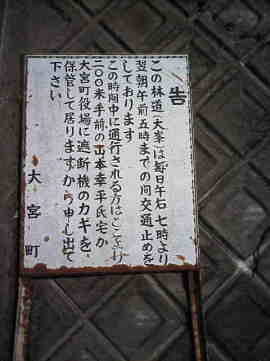 告
この林道(大峯)は毎日午后七時より
翌朝午前五時までの間交通止めを
しております
この時間中に通行される方は
二〇〇米手前の山本幸平氏宅か
大宮町役場に遮断機のカギを
保管して居りますから申し出て
下さい
大宮町